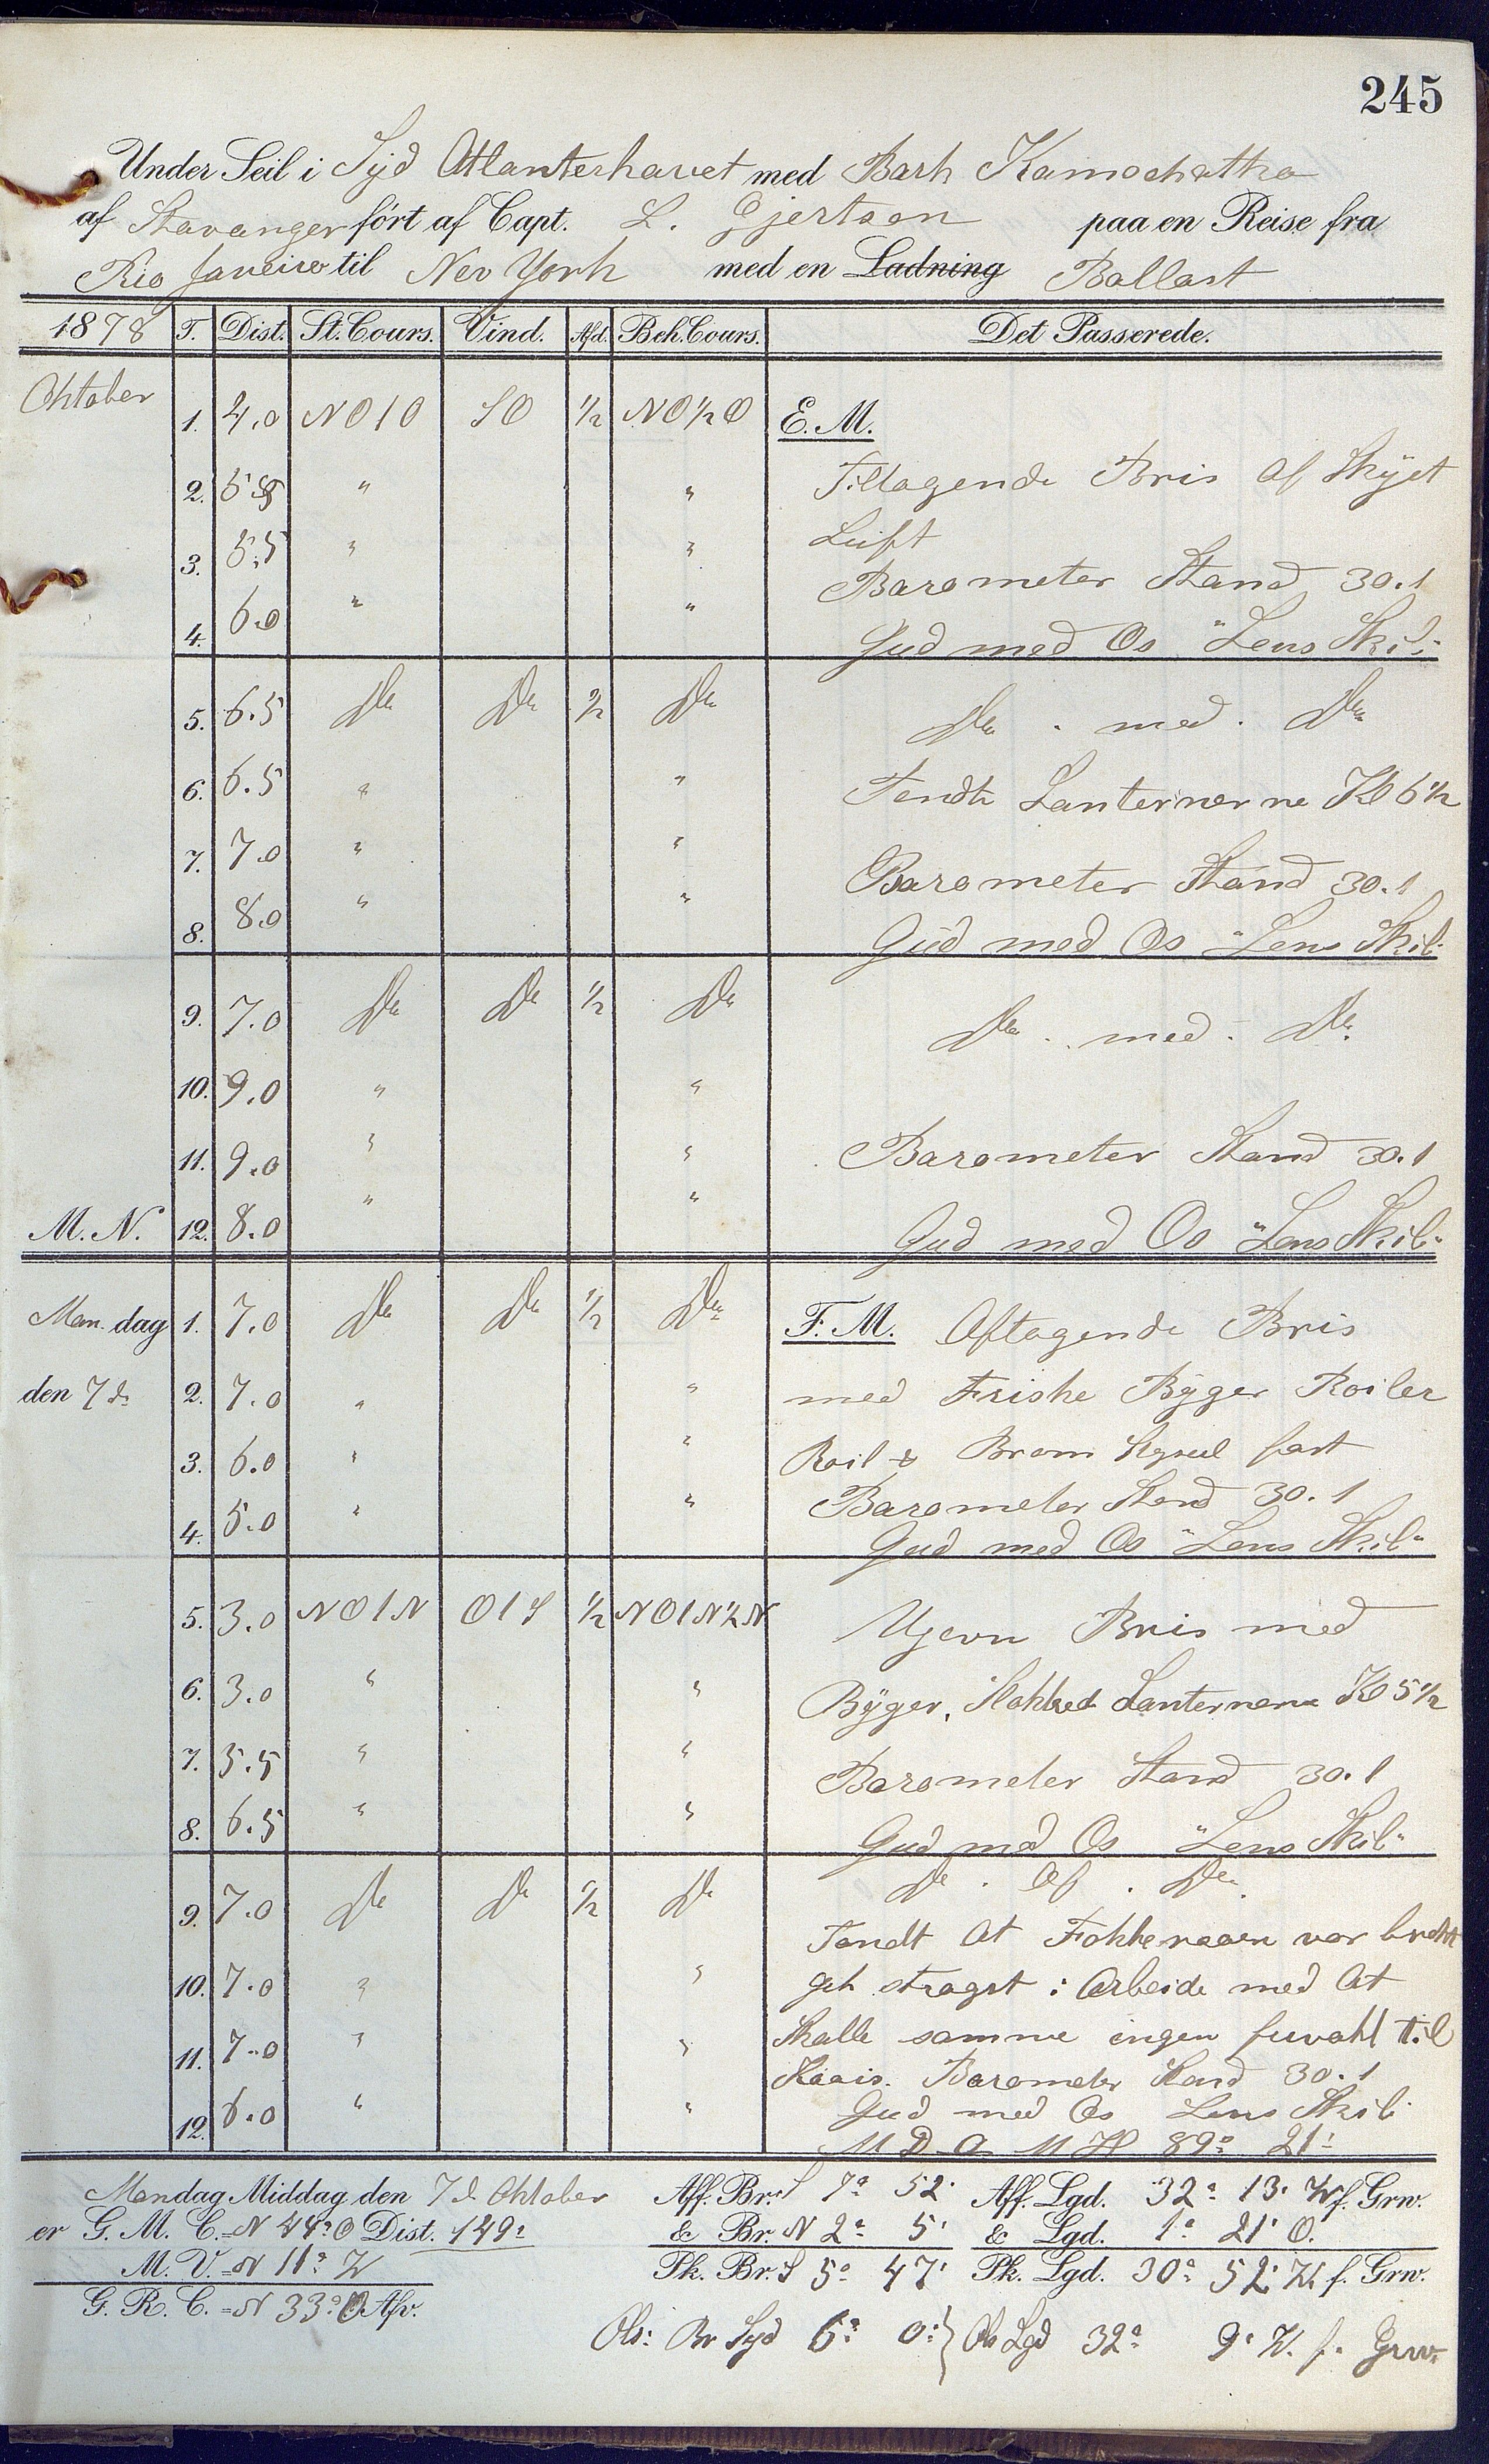 245
Under Seil i Syd Atlanterhavet med Bark Kamschatka
af Stavanger fört af Capt. L. Gjertsen paa en Reise fra
Rio Janeiro til New York med en Ladning Ballast
1878 T. Dist. St. Cours. Vind. Afd. Beh. Cours. Det Passerede.
Oktober 1. 4.0 NO1O SO 1/2 NO1/2O E. M.
2. " " Tiltagende Bris af Skyet
3. 5.5 " " Luft
Barometer Stand 30.1
4. 6.0 " " Gud med Os "Lens Skib"
5. 6.5 Do Do 1/2 Do Do . med . Do
6. 6.5 " " Tendte Lanternerne Kl 6 1/2
7. 7.0 " " Barometer Stand 30.1
8. 8.0 " " Gud med Os "Lens Skib"
9. 7.0 Do Do 1/2 Do Do . med . Do
10. 9.0 " "
11. 9.0 " " Barometer Stand 30.1
M. N. 12. 8.0 " " Gud med Os "Lens Skib"
Man dag 1. 7.0 Do Do 1/2 Do F. M. Aftagende Bris
den 7 d: 2. 7.0 " " med Friske Byger Roiler
3. 6.0 " " Roil & Bram Stgseil fast
Barometer Stand 30.1
4. 5.0 " " Gud med Os "Lens Skib"
5. 3.0 NO1N O1S 1/2 NO1N1/2N Ujevn Bris med
6. 3.0 " " Byger, Slokked Lanternerne Kl 5 1/2
7. 5.5 " " Barometer Stand 30.1
8. 6.5 " " Gud med Os "Lens Skib"
9. 7.0 Do Do 1/2 Do Do . af . Do
Fandt At Fokkeraaen var brekt
10. 7.0 " " gik stragst i Arbeide med At
11. 7.0 " " Skalle samme ingen til
Barometer Stand 30.1
12. 6.0 " " Gud med Os Lens Skib
M D A M H 89° 21'
Mandag Middag den 7 d. Oktober Aff. Br. S 7° 52' Aff. Lgd. 32° 13' W f. Grw.
er G. M. C. = N 44° O Dist. 149' & Br. N 2° 5' & Lgd. 1° 21' O.
M. V. = N 11° W Pk. Br. S 5° 47' Pk. Lgd. 30° 52' W. f. Grw.
G. R. C. = N 33° O Afv.
Obs: Br Syd 6° 0' } Ob Lgd 32° 9' W. f. Grw.